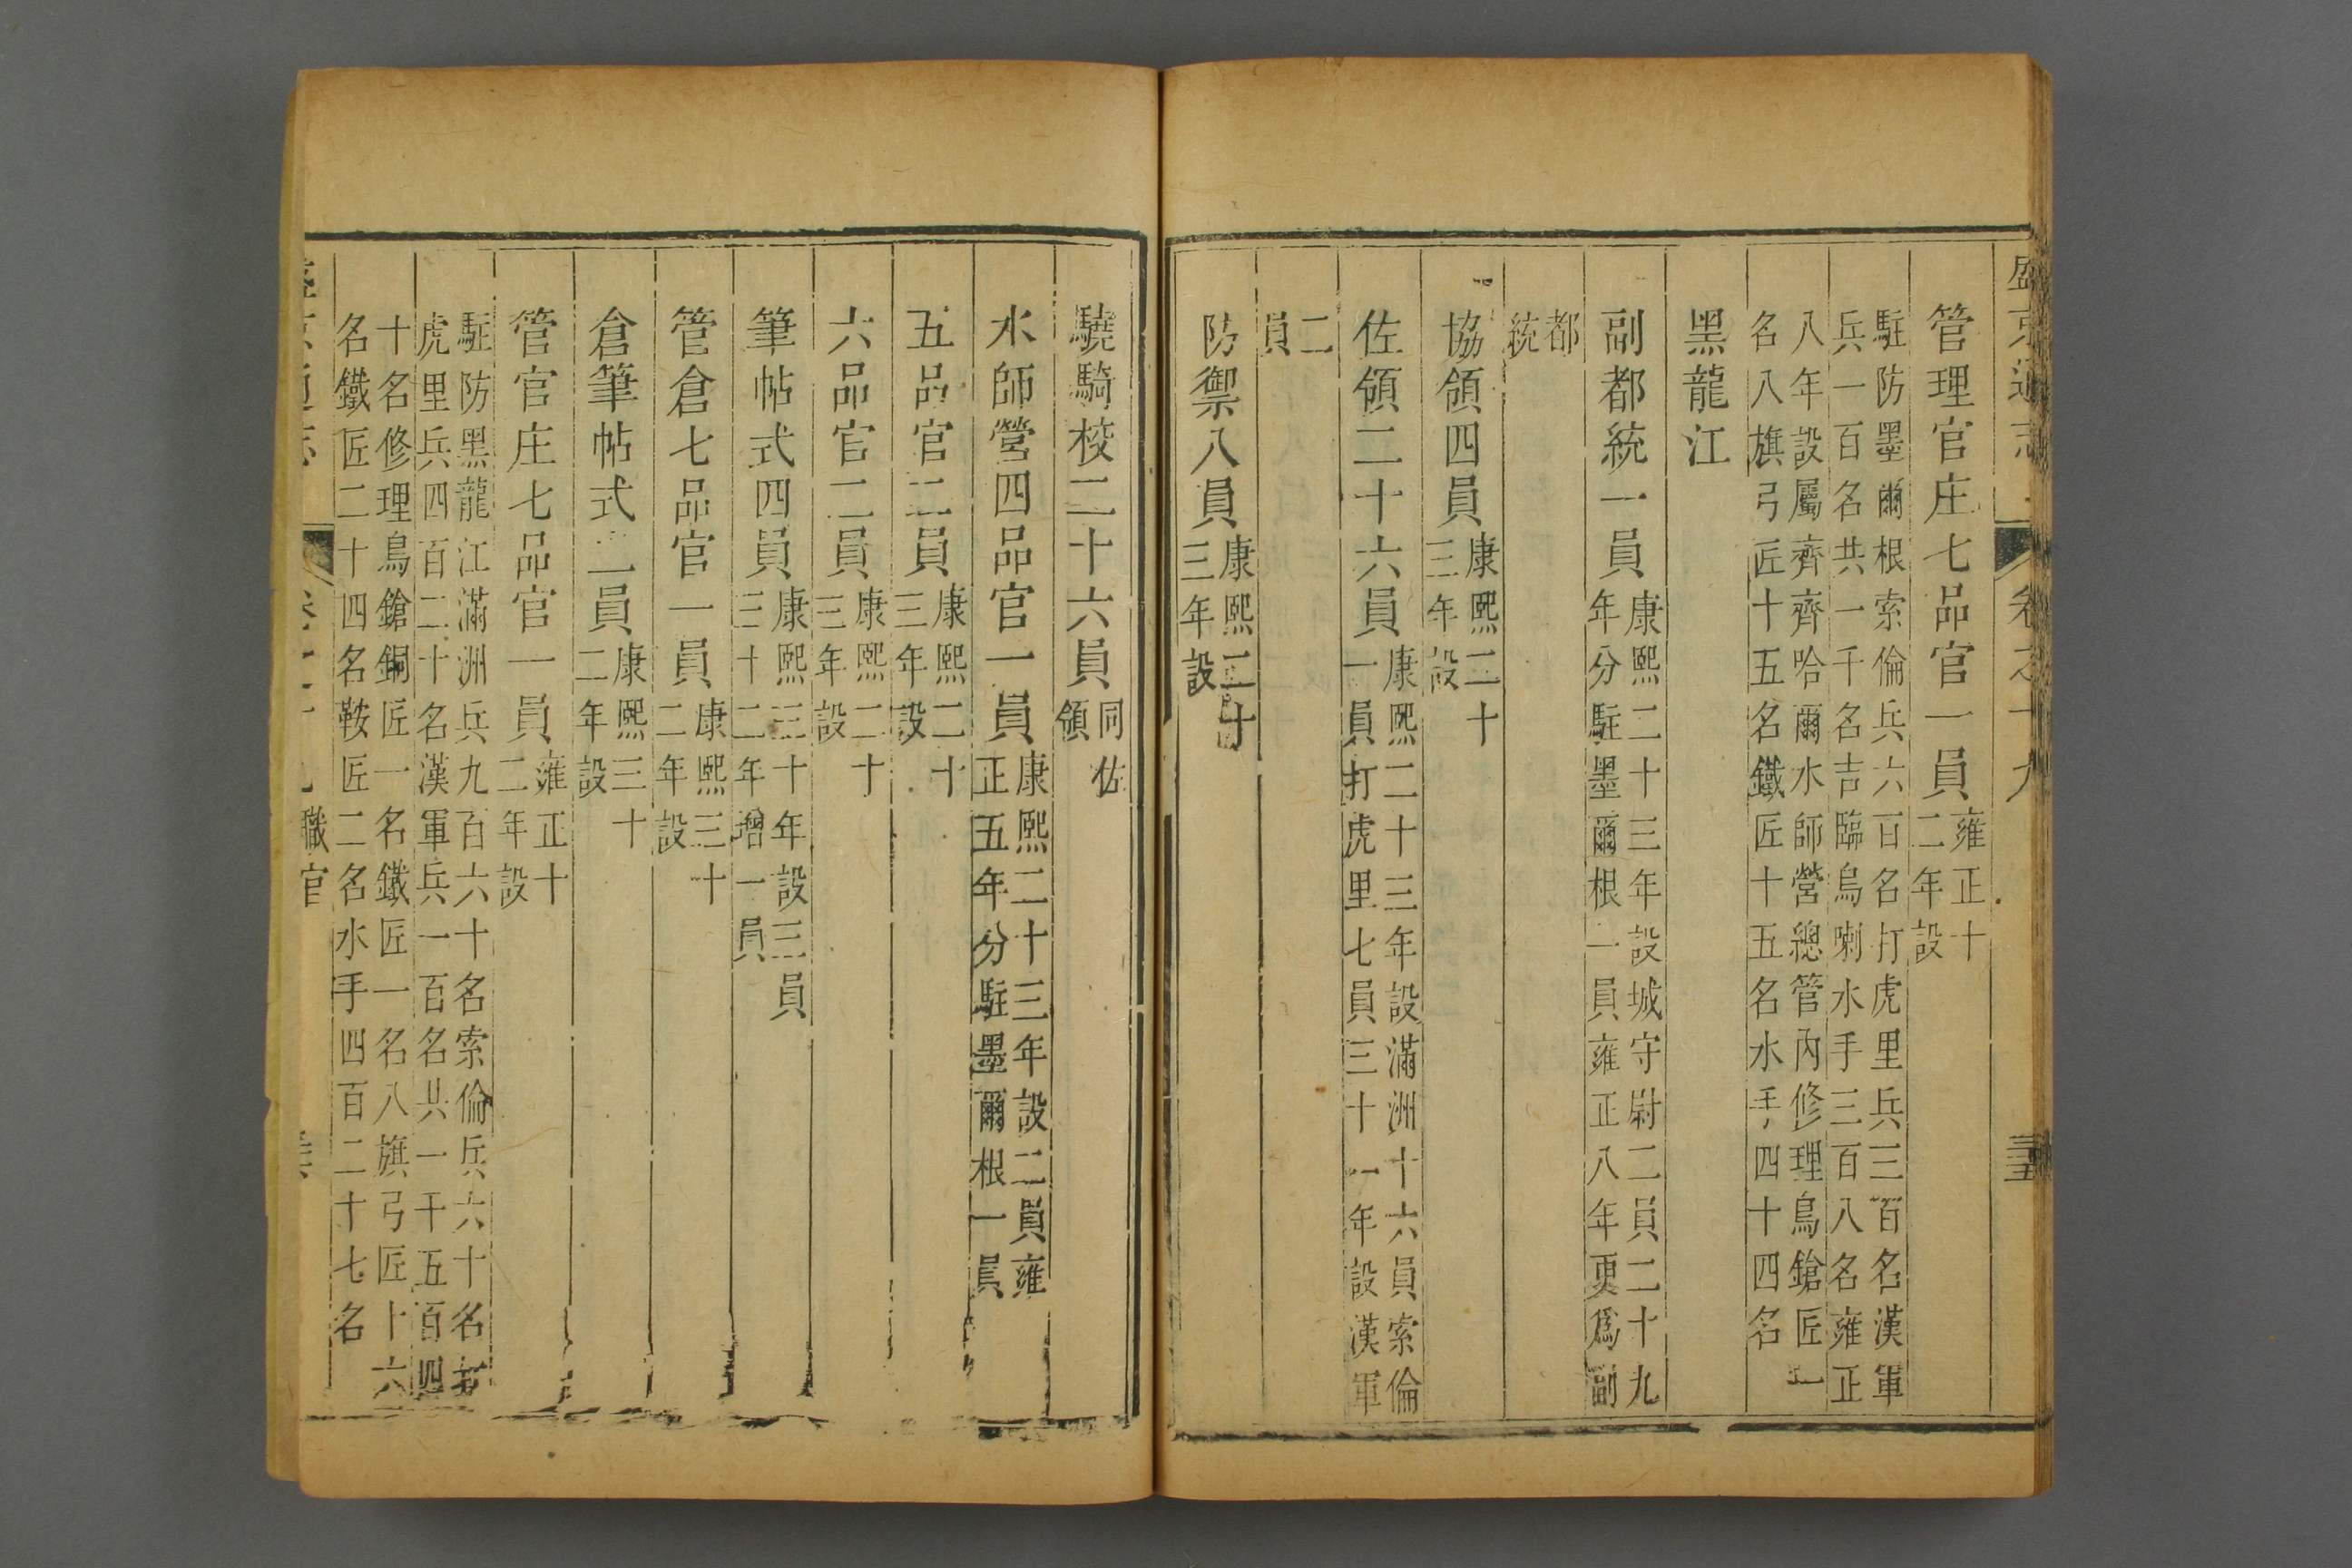 盛京通志 卷之十九 三十五
管理官庄七品官一員雍正十
二年設
駐防墨爾根索倫兵六百名打虎里兵三百名漢軍
兵一百名共一千名吉臨烏喇水手三百八名雍正
八年設屬齊齊哈爾水師營總管內修理鳥鎗匠一
名八旗弓匠十五名鐵匠十五名水手四十四名
黑龍江
副都統一員康熙二十三年設城守尉二員二十九
年分駐墨爾根一員雍正八年更爲副
都
統
協領四員康熙二十
三年設
佐領二十六員康熙二十三年設滿洲十六員索倫
一員打虎里七員三十一年設漢軍
二
員
防禦八員康熙二十
三年設
驍騎校二十六員同佐
領
水師營四品官一員康熙二十三年設二員雍
正五年分駐墨爾根一員
五品官二員康熙二十
三年設
六品官二員康熙二十
三年設
筆帖式四員康熙三十年設三員
三十二年增一員
管倉七品官一員康熙三十
二年設
倉筆帖式二員康熙三十
二年設
管官庄七品官一員雍正十
二年設
駐防黑龍江滿洲兵九百六十名索倫兵六十名打
虎里兵四百二十名漢軍兵一百名共一千五百四
十名修理鳥鎗銅匠一名鐵匠一名八旗弓匠十六
名鐵匠二十四名鞍匠二名水手四百二十七名
職官